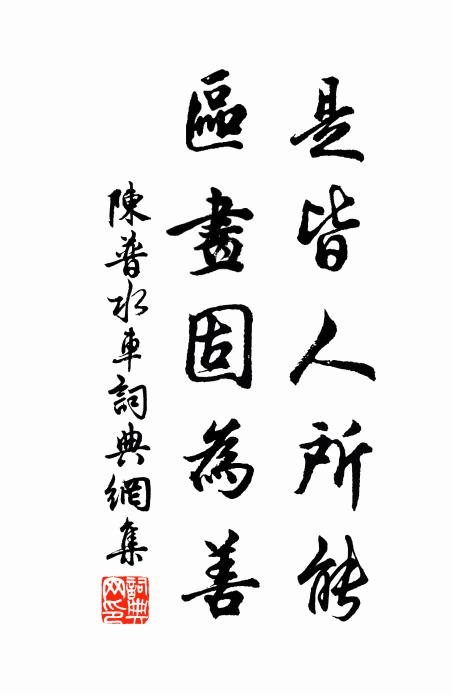 是皆人所能
區畫固為善
陳普水車詞典網集
詞典網印